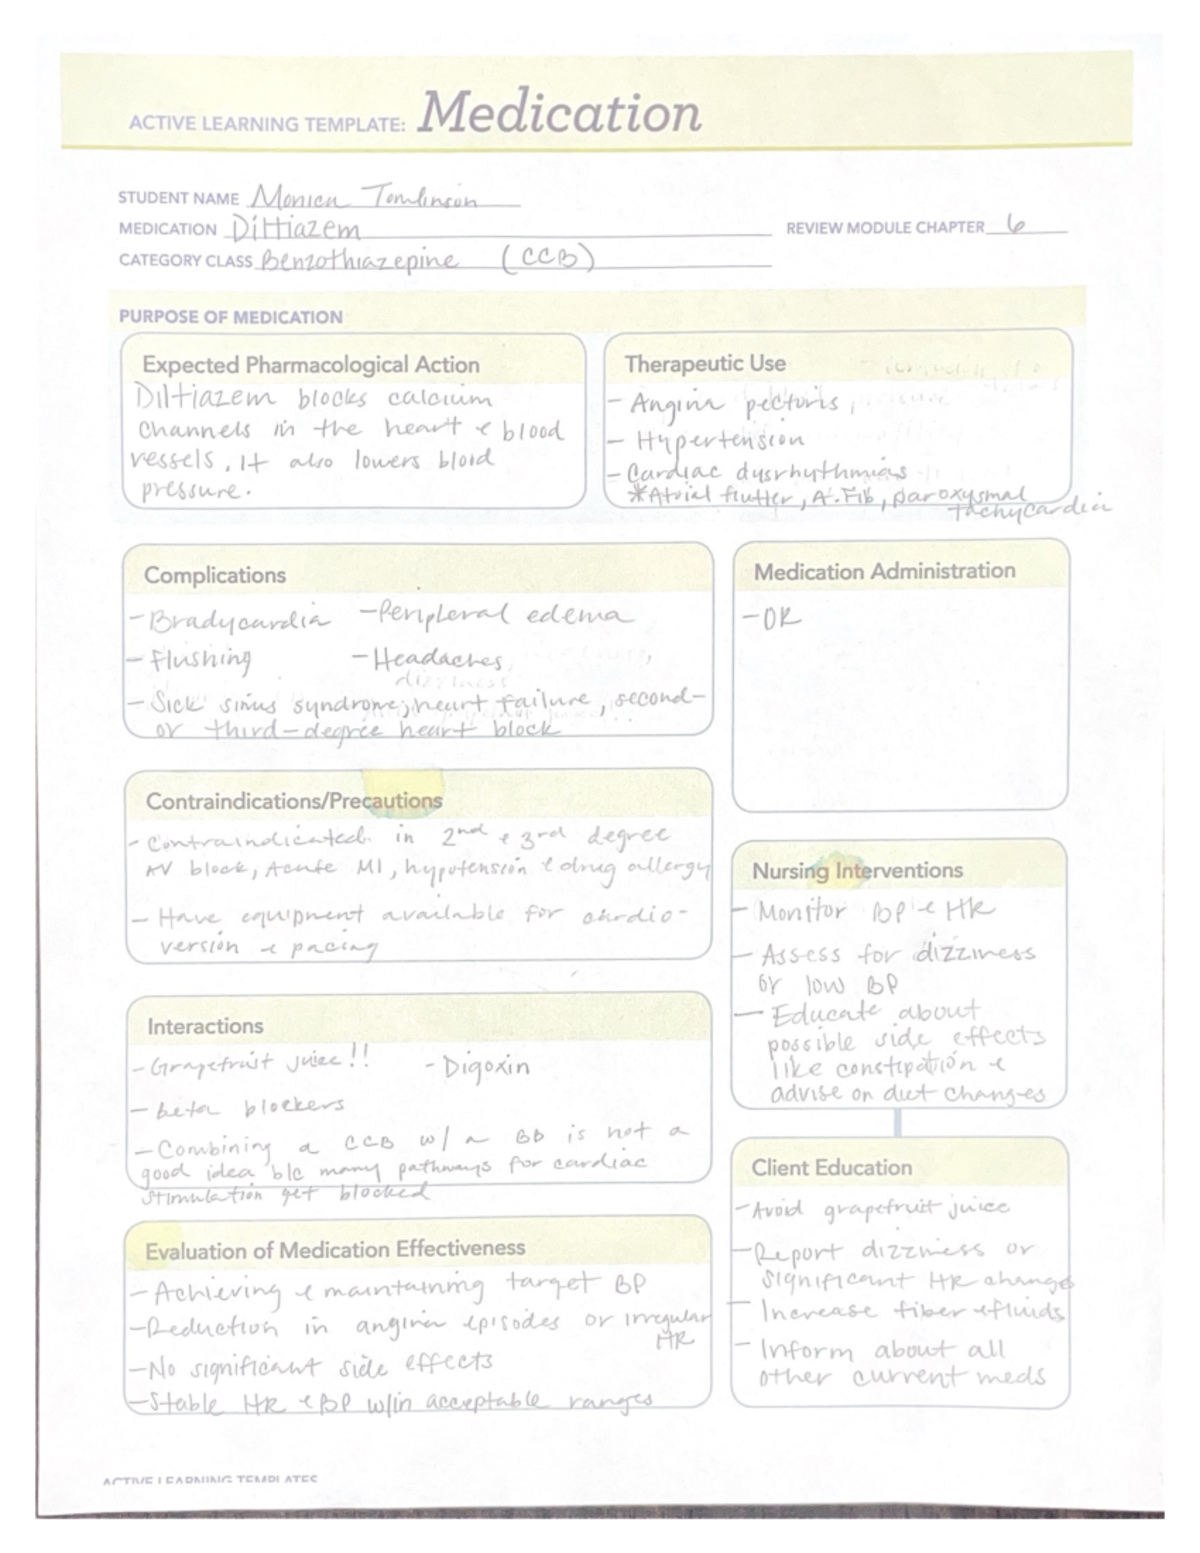 ACTIVE LEARNING TEMPLATE: Medication
STUDENT NAME Monica Tomlinson
MEDICATION Diltiazem
REVIEW MODULE CHAPTER 6
CATEGORY CLASS Benzothiazepine (CCB)
PURPOSE OF MEDICATION
Expected Pharmacological Action
Diltiazem blocks calcium
channels in the heart & blood
vessels. It also lowers blood
pressure.
Therapeutic Use
- Angina pectoris,
- Hypertension
- Cardiac dysrhythmias
*Atrial flutter, A.Fib, paroxysmal
tachycardia
Complications
- Bradycardia - Peripheral edema
- Flushing - Headaches
dizziness
- Sick sinus syndrome, heart failure, second-
or third-degree heart block
Medication Administration
- OR
Contraindications/Precautions
- Contraindicated in 2nd & 3rd degree
AV block, Acute MI, hypotension & drug allergy
- Have equipment available for cardio-
version & pacing
Nursing Interventions
- Monitor BP & HR
- Assess for dizziness
or low BP
- Educate about
possible side effects
like constipation &
advise on diet changes
Interactions
- Grapefruit juice!! - Digoxin
- beta blockers
- Combining a CCB w/ a BB is not a
good idea b/c many pathways for cardiac
stimulation get blocked
Client Education
- Avoid grapefruit juice
- Report dizziness or
significant HR changes
- Increase fiber & fluids
- Inform about all
other current meds
Evaluation of Medication Effectiveness
- Achieving & maintaining target BP
- Reduction in angina episodes or irregular
HR
- No significant side effects
- Stable HR & BP w/in acceptable ranges
ACTIVE LEARNING TEMPLATES